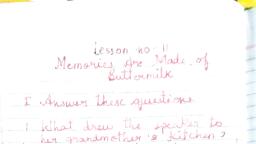 Lesson no - 11
Memories Are Made of
Buttermilk
I Answer these questions
1 What drew the speaker to
her grandmother's kitchen?